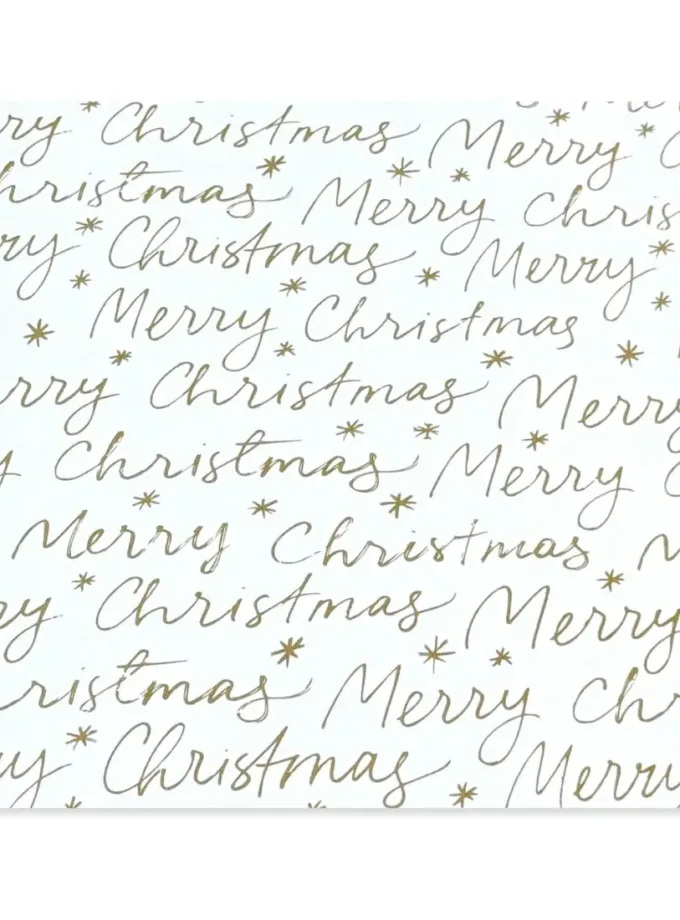 rry Christmas Merry C
hristmas Merry Chris
rry Christmas Merry
Merry Christmas
rry Christmas Merry
y Christmas Merry C
Merry Christmas M
ry Christmas Merry
ristmas Merry Chr
ry Christmas Merry